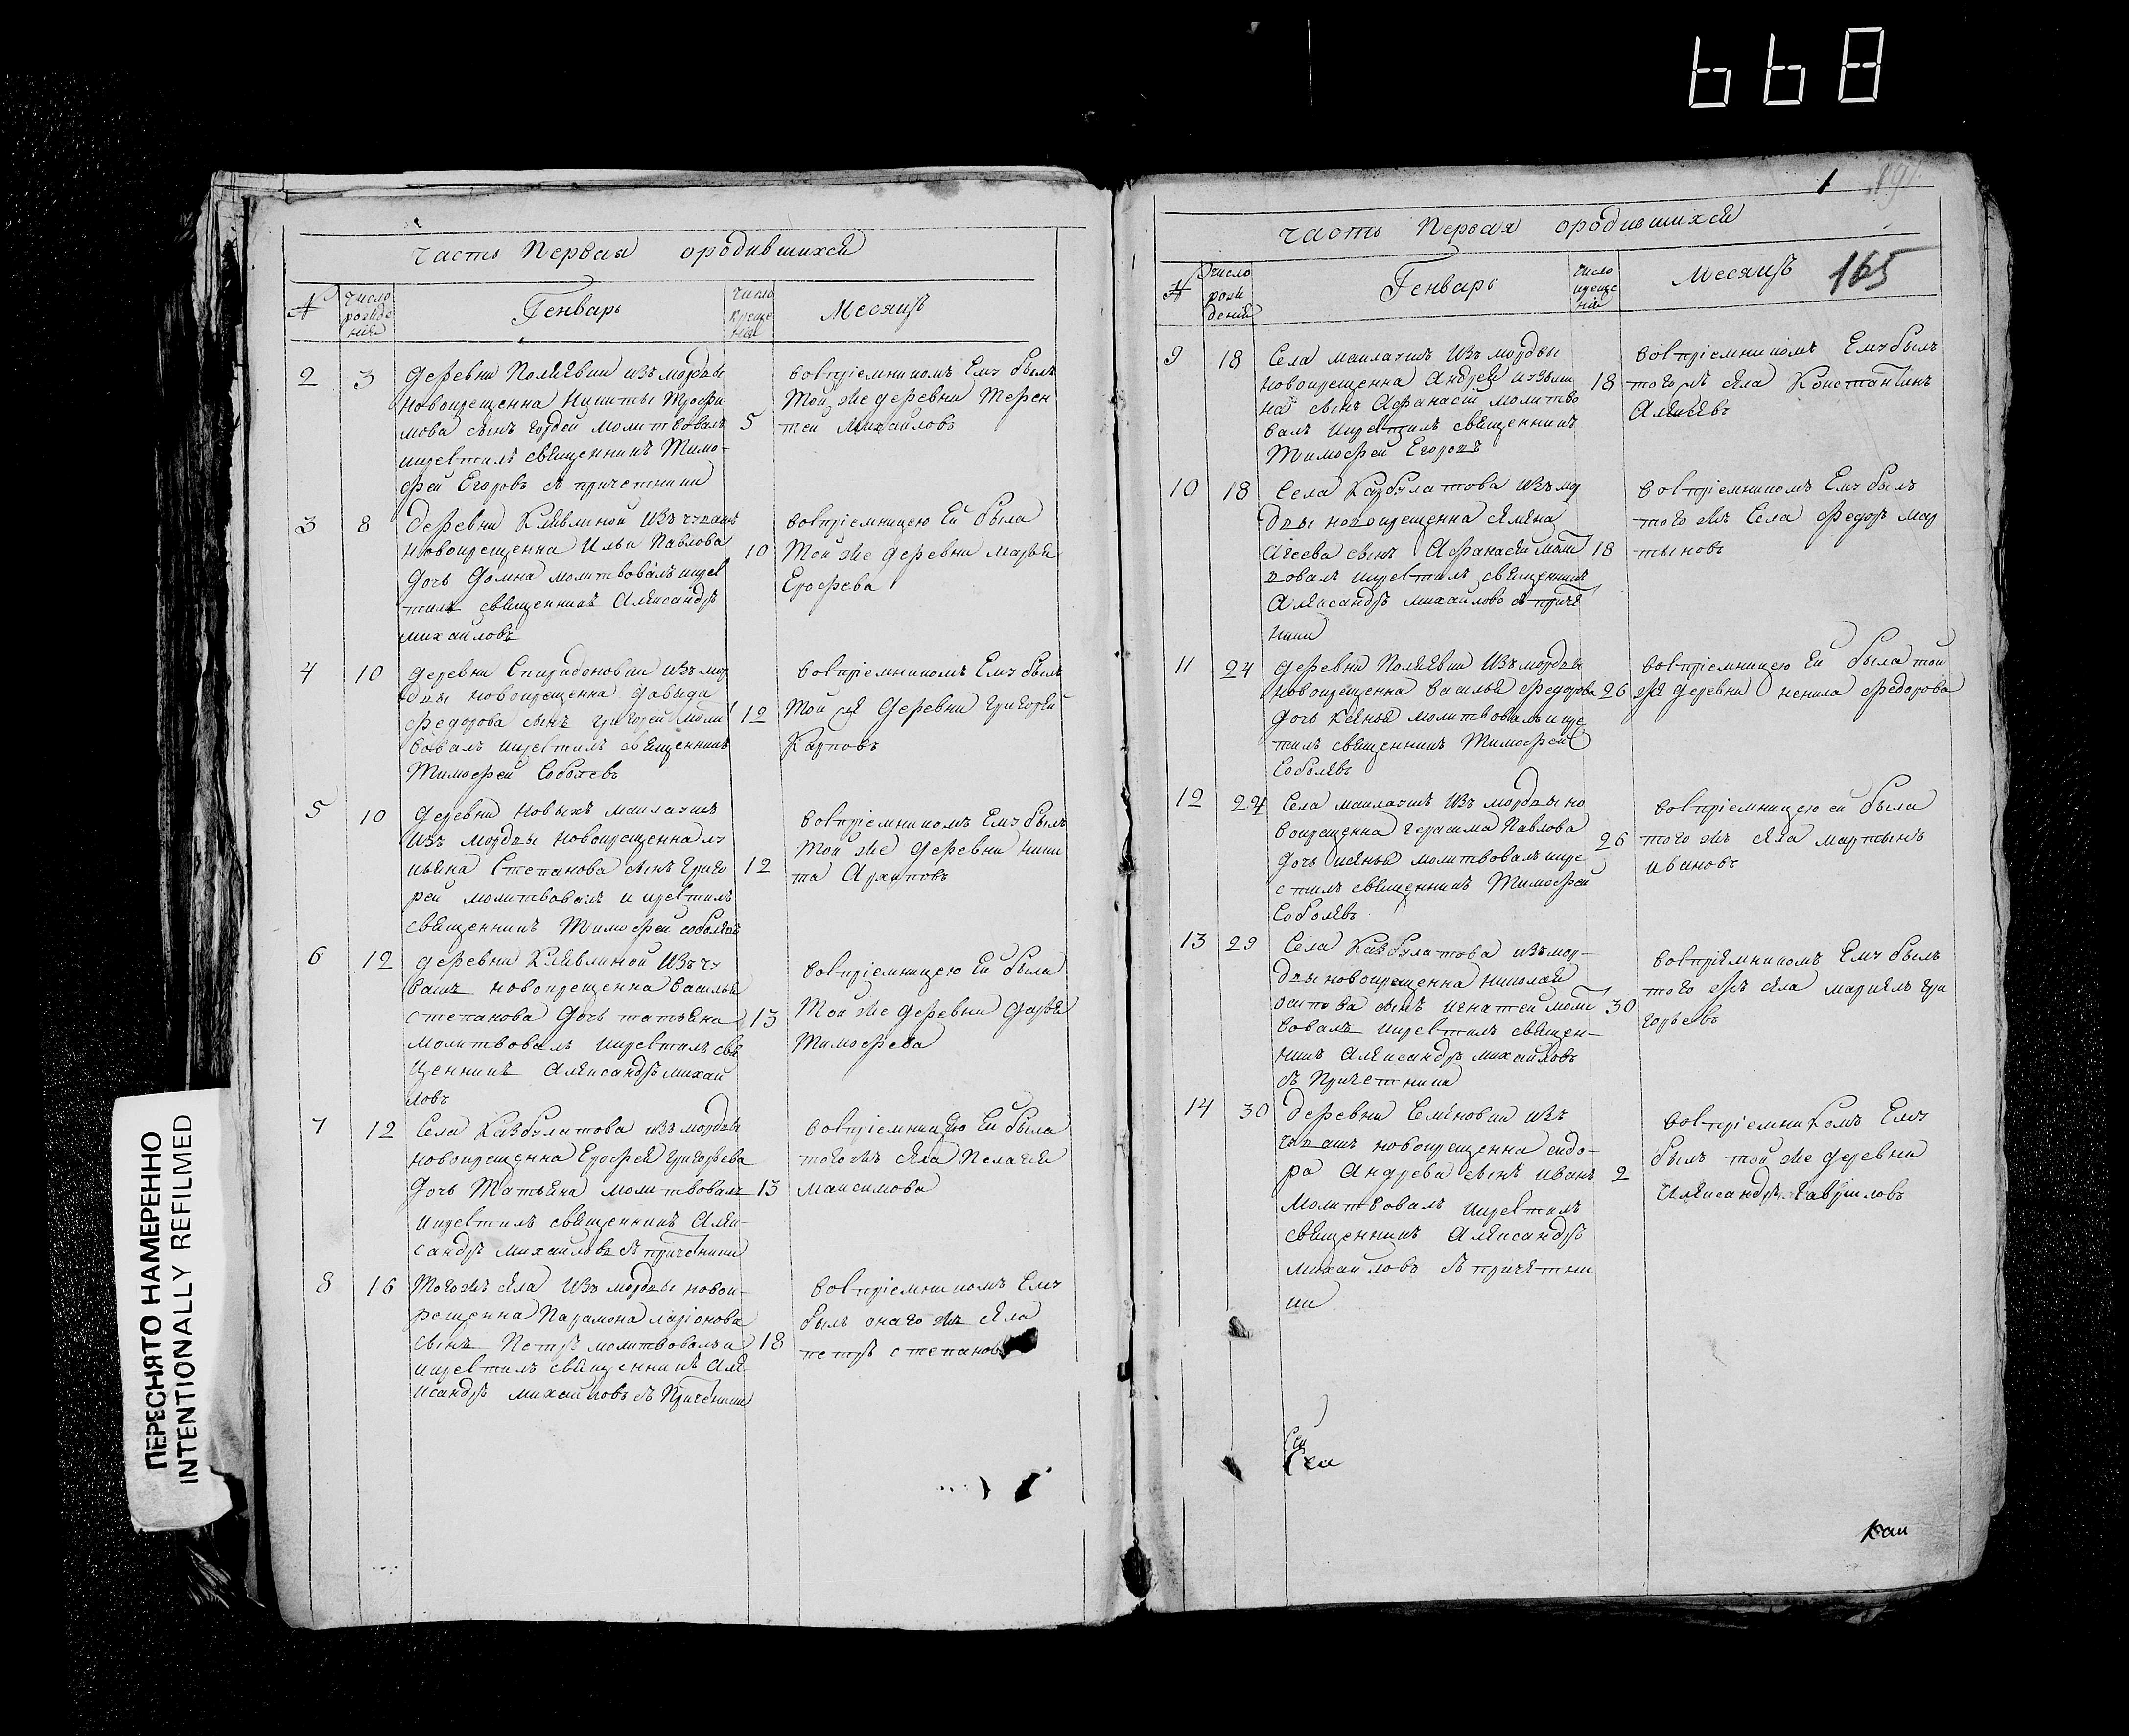 668
Часть Первая ородившихся
№
число рожде ния
Генварь
число креще ния
Месяцъ
2
3
деревни Полаевки изъ мордвы
новокрещенна Никиты Трофи
мова сынъ Гордей молитвовалъ
5
икрестилъ священникъ Тимо-
фей Егоровъ съ причетники
восприемникомъ Ему былъ
Той же деревни Терен
тей Михайловъ
3
8
деревни Клявлиной Изъ чувашъ
новокрещенна Ильи Павлова
10
дочь Домна молитвовалъ икрес
тилъ священникъ Александръ
михайловъ
восприемницею Ей была
Той же деревни марья
Ерофеева
4
10
деревни Спиридоновки изъ мор
двы новокрещенна Давыда
Федорова сынъ Григорей моли
12
вовалъ икрестилъ священникъ
Тимофей Соболевъ
восприемникомъ Ему былъ
Той же деревни Григорей
Карповъ
5
10
деревни новыхъ маклаушъ
Изъ мордвы новокрещенна лу
кьяна Степанова сынъ Григо
12
рей молитвовалъ и крестилъ
священникъ Тимофей соболевъ
восприемникомъ Ему былъ
Той же деревни ники
та Архиповъ
6
12
деревни Клявлиной Изъ чу
вашъ новокрещенна Василья
степанова дочь татьяна
13
молитвовалъ икрестилъ свя
щенникъ Александръ михай
ловъ
восприемницею Ей была
Той же деревни дарья
Тимофеева
7
12
Села Казбулатова изъ мордвы
новокрещенна Ерофея Григорьева
дочь Татьяна молитвовалъ
13
икрестилъ священникъ Алек-
сандръ михайловъ съ причетники
восприемницею Ей была
того жъ села Пелагея
максимова
8
16
Того жъ села Изъ мордвы новок-
рещенна Парамона ларионова
сынъ Петръ молитвовалъ и
18
икрестилъ священникъ Але
ксандръ михайловъ съ Причетники
восприемникомъ Ему
былъ онаго жъ села
петръ степановъ
1
165
Часть Первая ородившихся
№
число рож дения
Генварь
число креще ния
Месяцъ
9
18
Села маклаушъ Изъ мордвы
новокрещенна Андрея
18
на сынъ Афанасий молитво
валъ икрестилъ священникъ
Тимофей Егоровъ
восприемникомъ Ему былъ
того жъ села Констаньтинъ
Алексеевъ
10
18
Села Казбулатова изъ мор
двы новокрещенна семена
Агеева сынъ Афанасий моли
18
вовалъ икрестилъ священникъ
Александръ михайлово съ приче
ники
восприемникомъ Ему былъ
того жъ Села Федоръ мар
тыновъ
11
24
деревни Полаевки Изъ мордвы
новокрещенна василья федорова
26
дочь ксенья молитвовалъ икре
тилъ священникъ Тимофей
Соболевъ
восприемницею Ей была той
же деревни ненила федорова
12
24
Села маклаушъ Изъ мордвы но
вокрещенна герасима Павлова
26
дочь ксенья молитвовалъ икре
стилъ священникъ Тимофей
Соболевъ
восприемницею ей была
того жъ села мартынъ
ивановъ
13
29
Села Казбулатова изъ мор-
двы новокрещенна николая
осипова сынъ игнатей моли
30
вовалъ икрестилъ священ-
никъ Александръ михайловъ
съ Причетники
восприемникомъ Ему былъ
того жъ села маркелъ гри
горьевъ
14
30
деревни Семеновки изъ
чувашъ новокрещенна сидо-
ра Андреева сынъ иванъ
2
молитвовалъ икрестилъ
священникъ Александръ
михайловъ съ причетни
ки
восприемникомъ Ему
былъ той же деревни
Александръ Гавриловъ
ПЕРЕСНЯТО НАМЕРЕННО
INTENTIONALLY REFILMED